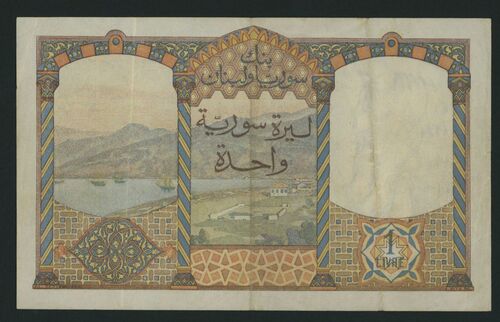 بنك
سوريا ولبنان
ليرة سورية
واحدة
1
LIVRE